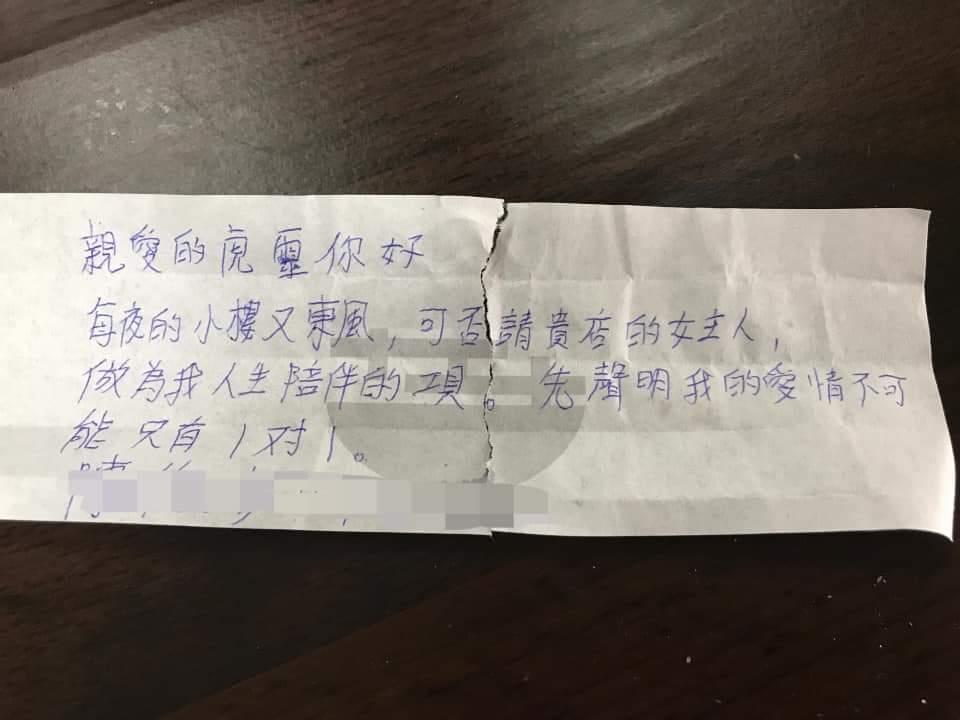 親愛的虎靈你好
每夜的小樓又東風,可否請貴店的女主人,
做為我人生陪伴的工項。先聲明我的愛情不可
能只有1对1。